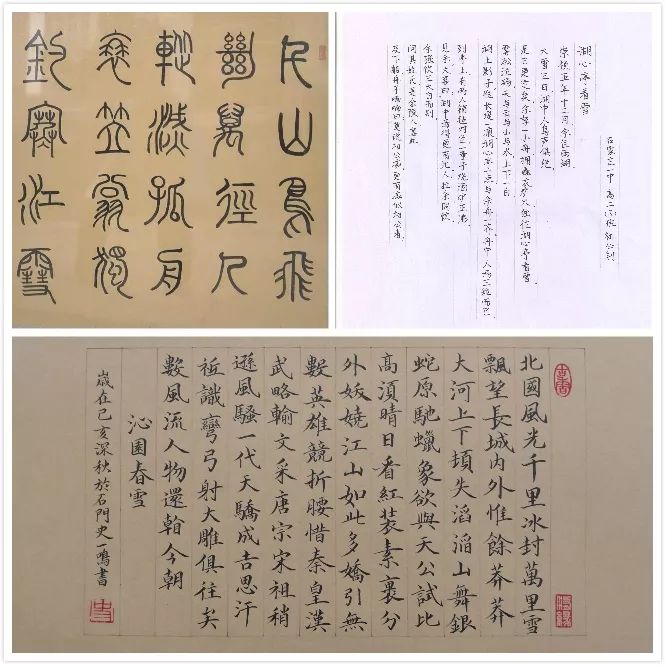 千山鳥飛
絕萬徑人
蹤滅孤舟
蓑笠翁獨
釣寒江雪
石家庄一中 高二
湖心亭看雪
崇祯五年十二月,余住西湖
大雪三日,湖中人鸟声俱绝
是日更定矣,余挐一小舟,拥毳衣炉火,独往湖心亭看雪
雾凇沆砀,天与云与山与水,上下一白
湖上影子,惟长堤一痕,湖心亭一点,与余舟一芥,舟中人两三粒而已
到亭上,有两人铺毡对坐,一童子烧酒炉正沸
见余大喜曰,湖中焉得更有此人,拉余同饮
余强饮三大白而别
问其姓氏,是金陵人,客此
及下船,舟子喃喃曰,莫说相公痴,更有痴似相公者
北國風光千里冰封萬里雪
飄望長城内外惟餘莽莽
大河上下頓失滔滔山舞銀
蛇原馳蠟象欲與天公試比
高須晴日看紅裝素裹分
外妖嬈江山如此多嬌引無
數英雄競折腰惜秦皇漢
武略輸文采唐宗宋祖稍
遜風騷一代天驕成吉思汗
祗識彎弓射大雕俱往矣
數風流人物還看今朝
沁園春雪
歲在己亥深秋於石門史一鳴書